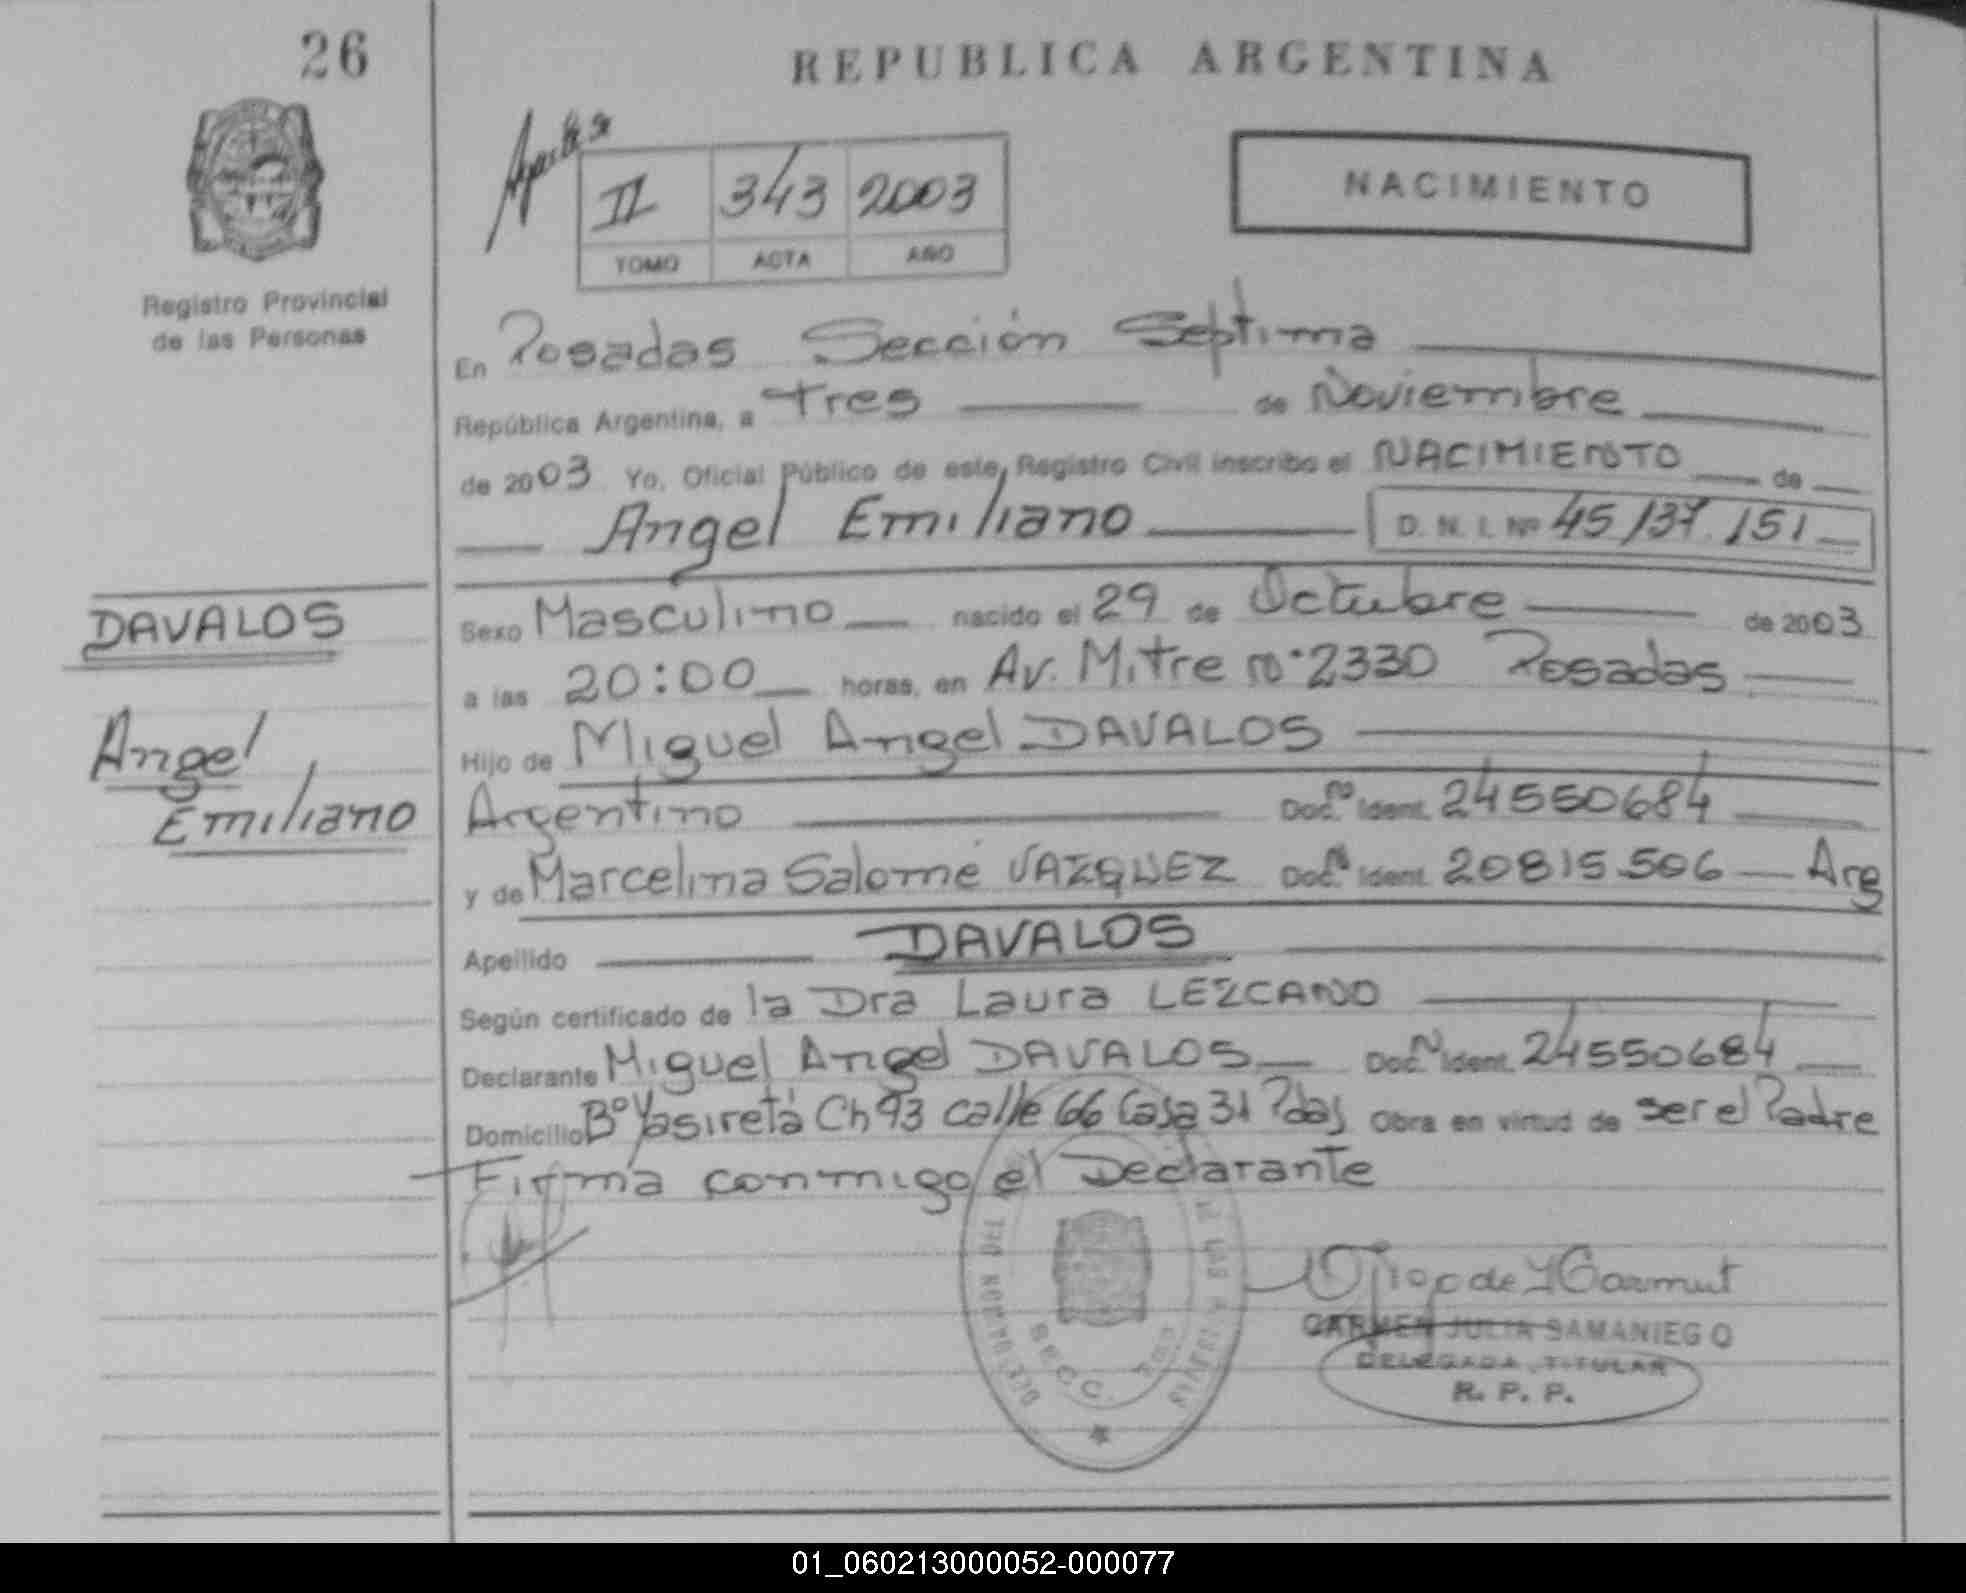 26
REPUBLICA ARGENTINA
II 343 2003
TOMO ACTA AÑO
NACIMIENTO
Registro Provincial
de las Personas
En Posadas Sección Septima
República Argentina, a Tres de Noviembre
de 2003 Yo, Oficial Público de este Registro Civil inscribo el NACIMIENTO de
Angel Emiliano D. N. I. Nº 45 137 151
DAVALOS
Angel
Emiliano
Sexo Masculino nacido el 29 de Octubre de 2003
a las 20:00 horas, en Av. Mitre nº 2330 Posadas
Hijo de Miguel Angel DAVALOS
Argentino Doc. Nº Ident. 24550684
y de Marcelina Salomé VAZQUEZ Doc. Nº Ident. 20815506 Arg
Apellido DAVALOS
Según certificado de la Dra Laura LEZCANO
Declarante Miguel Angel DAVALOS Doc. N Ident. 24550684
Domicilio Bº Yasiretá Ch 93 calle 66 Casa 31 Pdas Obra en virtud de ser el Padre
Firma conmigo el Declarante
CARMEN JULIA SAMANIEGO
DELEGADA TITULAR
R. P. P.
SECC.
01_060213000052-000077